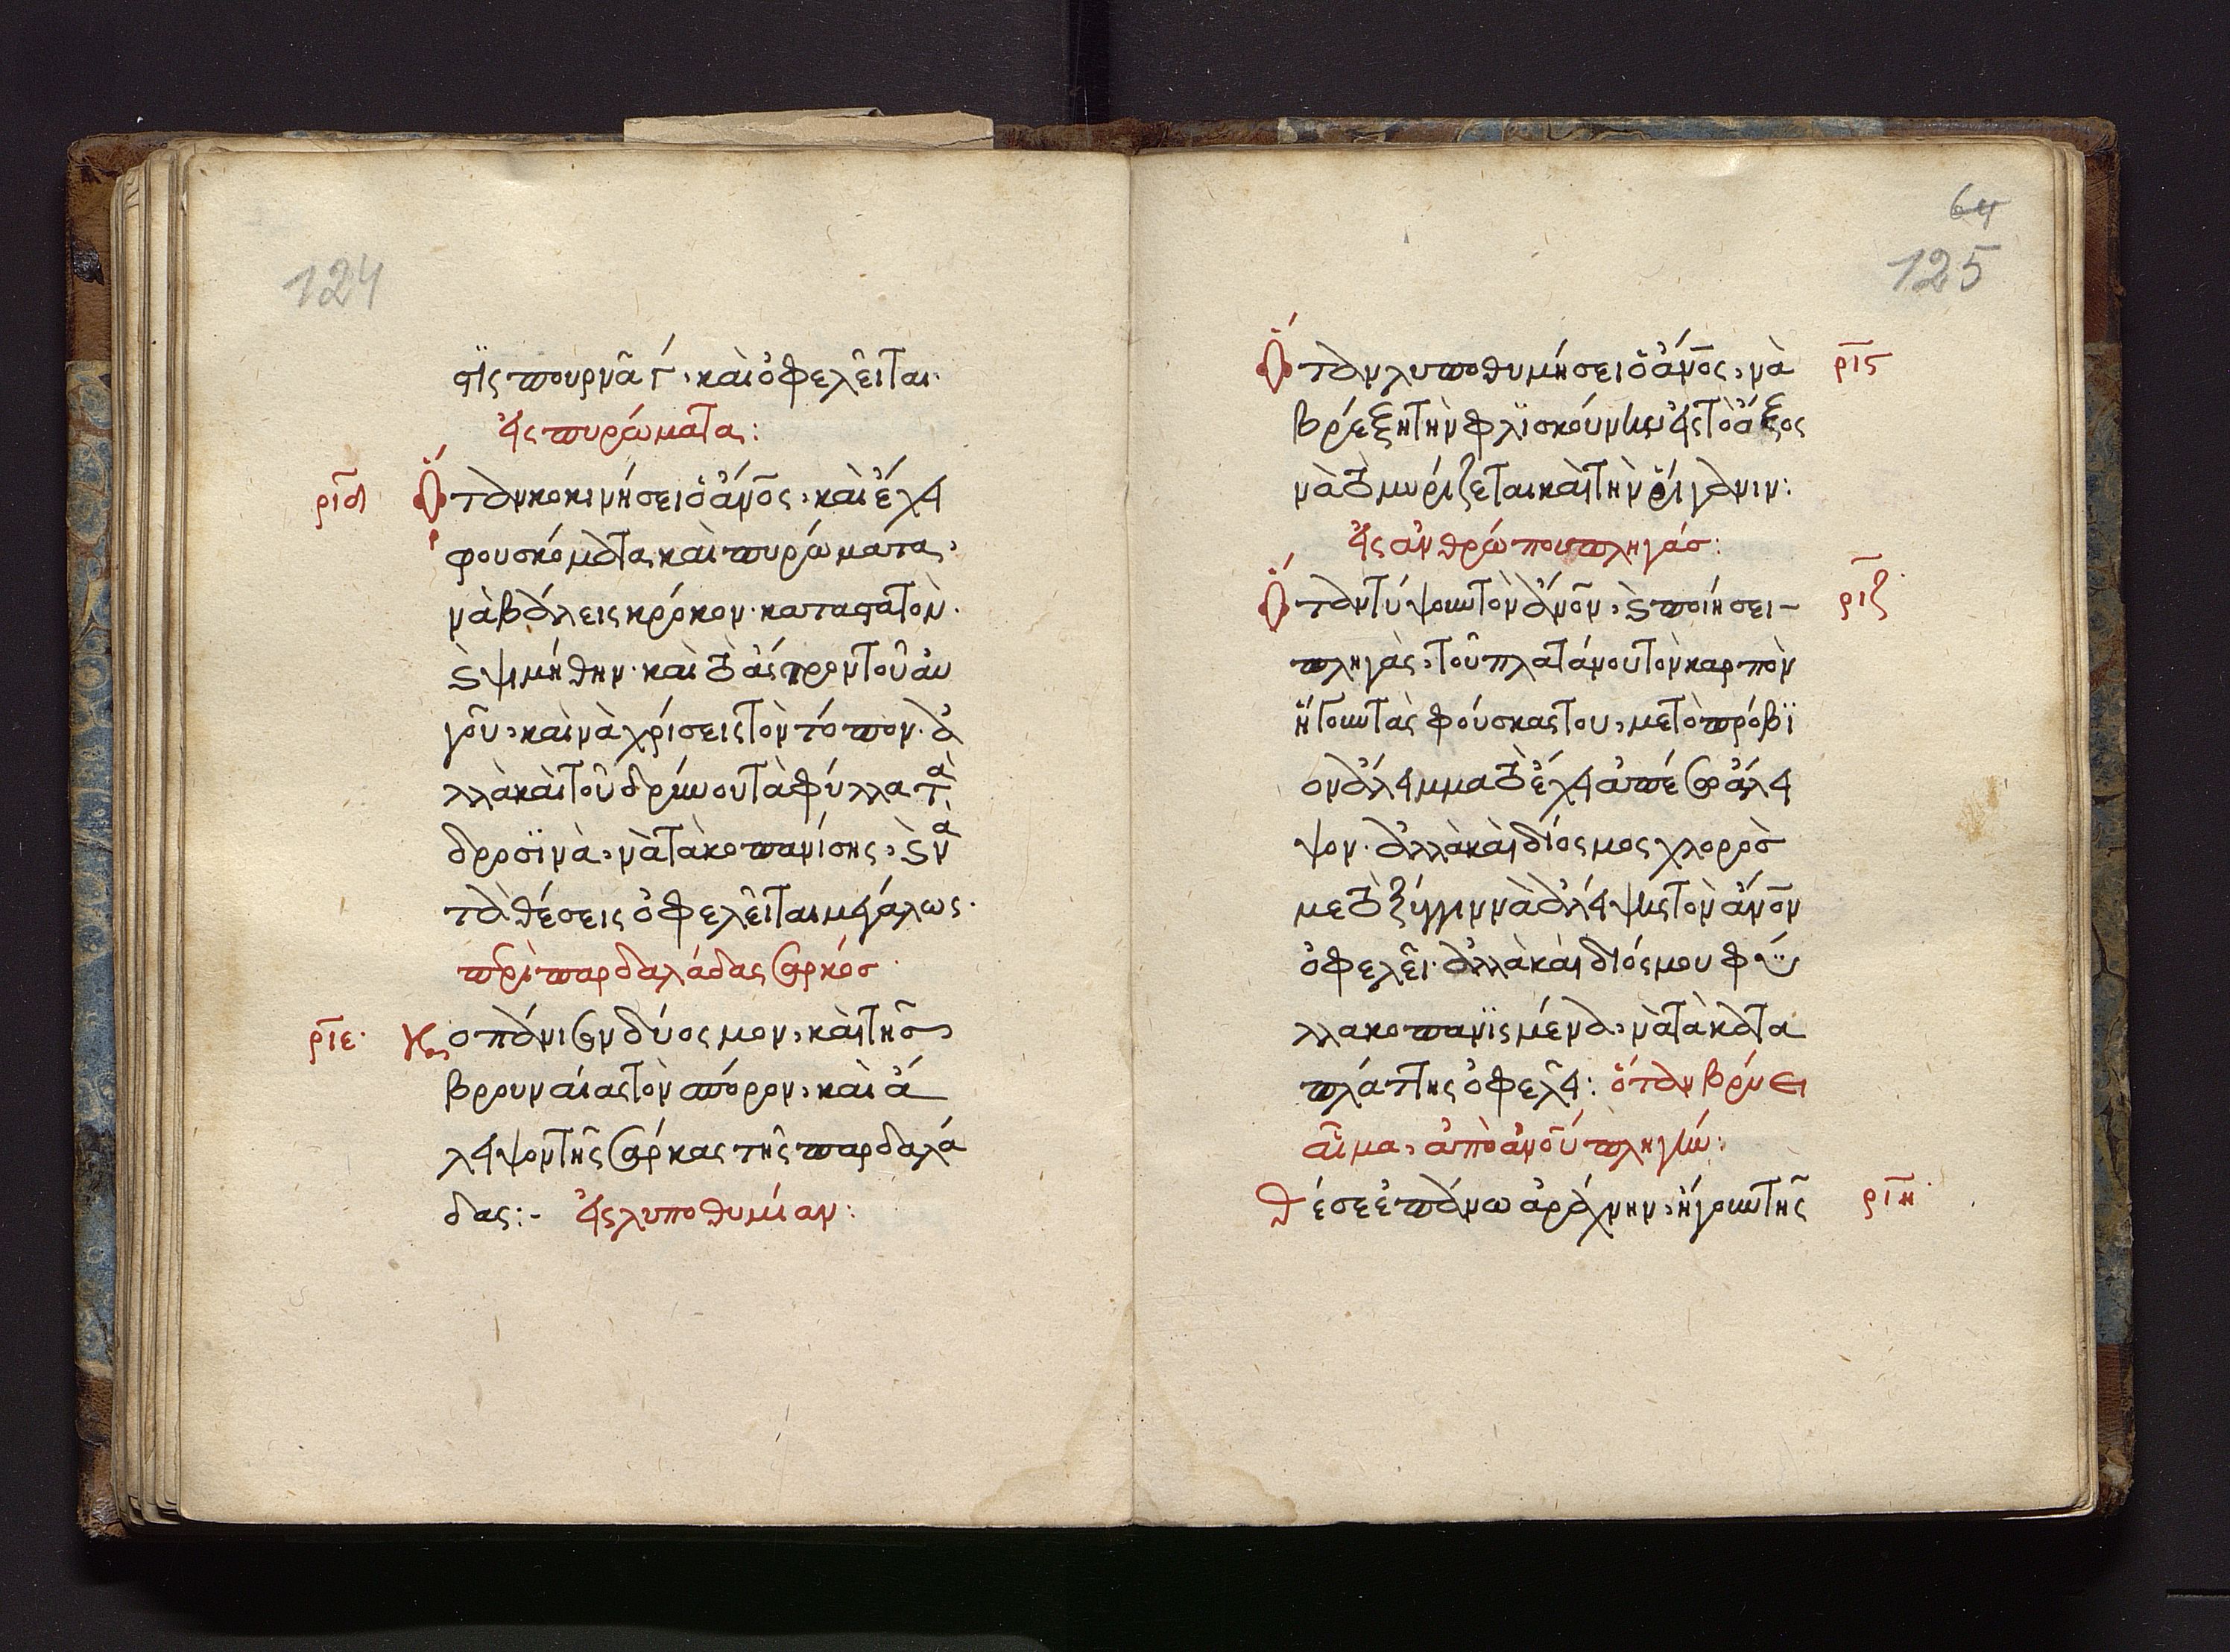 124
αῖς πουρνᾶ γ΄. καὶ ὀφελεῖται.
εἰς πυρώματα:
ριδ
Ὅταν κοκινήσει ὁ ἄνος. καὶ ἔχει
φουσκόματα καὶ πυρώματα,
νὰ βάλεις κρόκον. καταπατὸν.
καὶ ψιμήθην. καὶ τὸ ἄσπρον τοῦ αυ
γοῦ, καὶ νὰ χρίσεις τὸν τόπον. ἀ
λλὰ καὶ τοῦ δρίνου τὰ φύλλα τὰ
δροσϊνὰ, νὰ τὰ κοπανίσης, καὶ νὰ
τὰ θέσεις ὀφελεῖται μεγάλως.
περὶ παρδαλάδας σαρκός.
ριε.
Κοπάνισον δύοσμον, καὶ τῆς
βρουναίας τὸν σπόρον, καὶ ἄ
λειψον τῆς σάρκας τῆς παρδαλά
δας:- εἰς λυποθυμίαν:
64
125
Ὅταν λυποθυμήσει ὁ ἄνος, νὰ
ρις
βρέξη τὴν φλϊσκούνην εἰς τὸ ἄξος
νὰ τὸ μυρίζεται καὶ τὴν ῥίγανιν:
εἰς ἀνθρώπου πληγάς:
Ὅταν τύψουν τὸν ἄνον, καὶ ποιήσει
ριζ
πληγὰς, τοῦ πλατάνου τὸν καρπὸν
ἤτουν τὰς φούσκας του, με τὸ πρόβϊ
ον ἄλειμμα τὸ ἔχει ἀπέσω ἄλει
ψον. ἀλλὰ καὶ δίοσμος χλορὸς
με τὸ ξύγγιν νὰ ἀλείψης τὸν ἄνον
ὀφελεῖ. ἀλλὰ καὶ διόσμου φύ
λλα κοπανϊσμένα. νὰ τὰ κατα
πλάττης ὀφελεῖ: ὅταν βρύει
αἷμα, ἀπὸ ἀνοῦ πληγήν:
Θέσε ἐπάνω ἀράχνην, ἤγουν τῆς
ριη